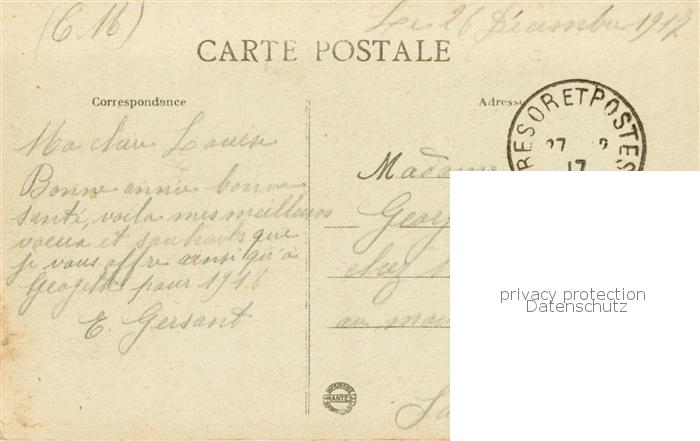 (C M)
Le 26 Décembre 1917
CARTE POSTALE
Correspondance
Adresse
TRESOR ET POSTES
27
17
Ma chère Louise
Bonne année bonne
santé, voila mes meilleurs
voeux et souhaits que
je vous offre ainsi qu'à
pour 1918
E. Gersant
Madame
Georg
chez
au
IMPRIMERIE
NANTES
privacy protection
Datenschutz